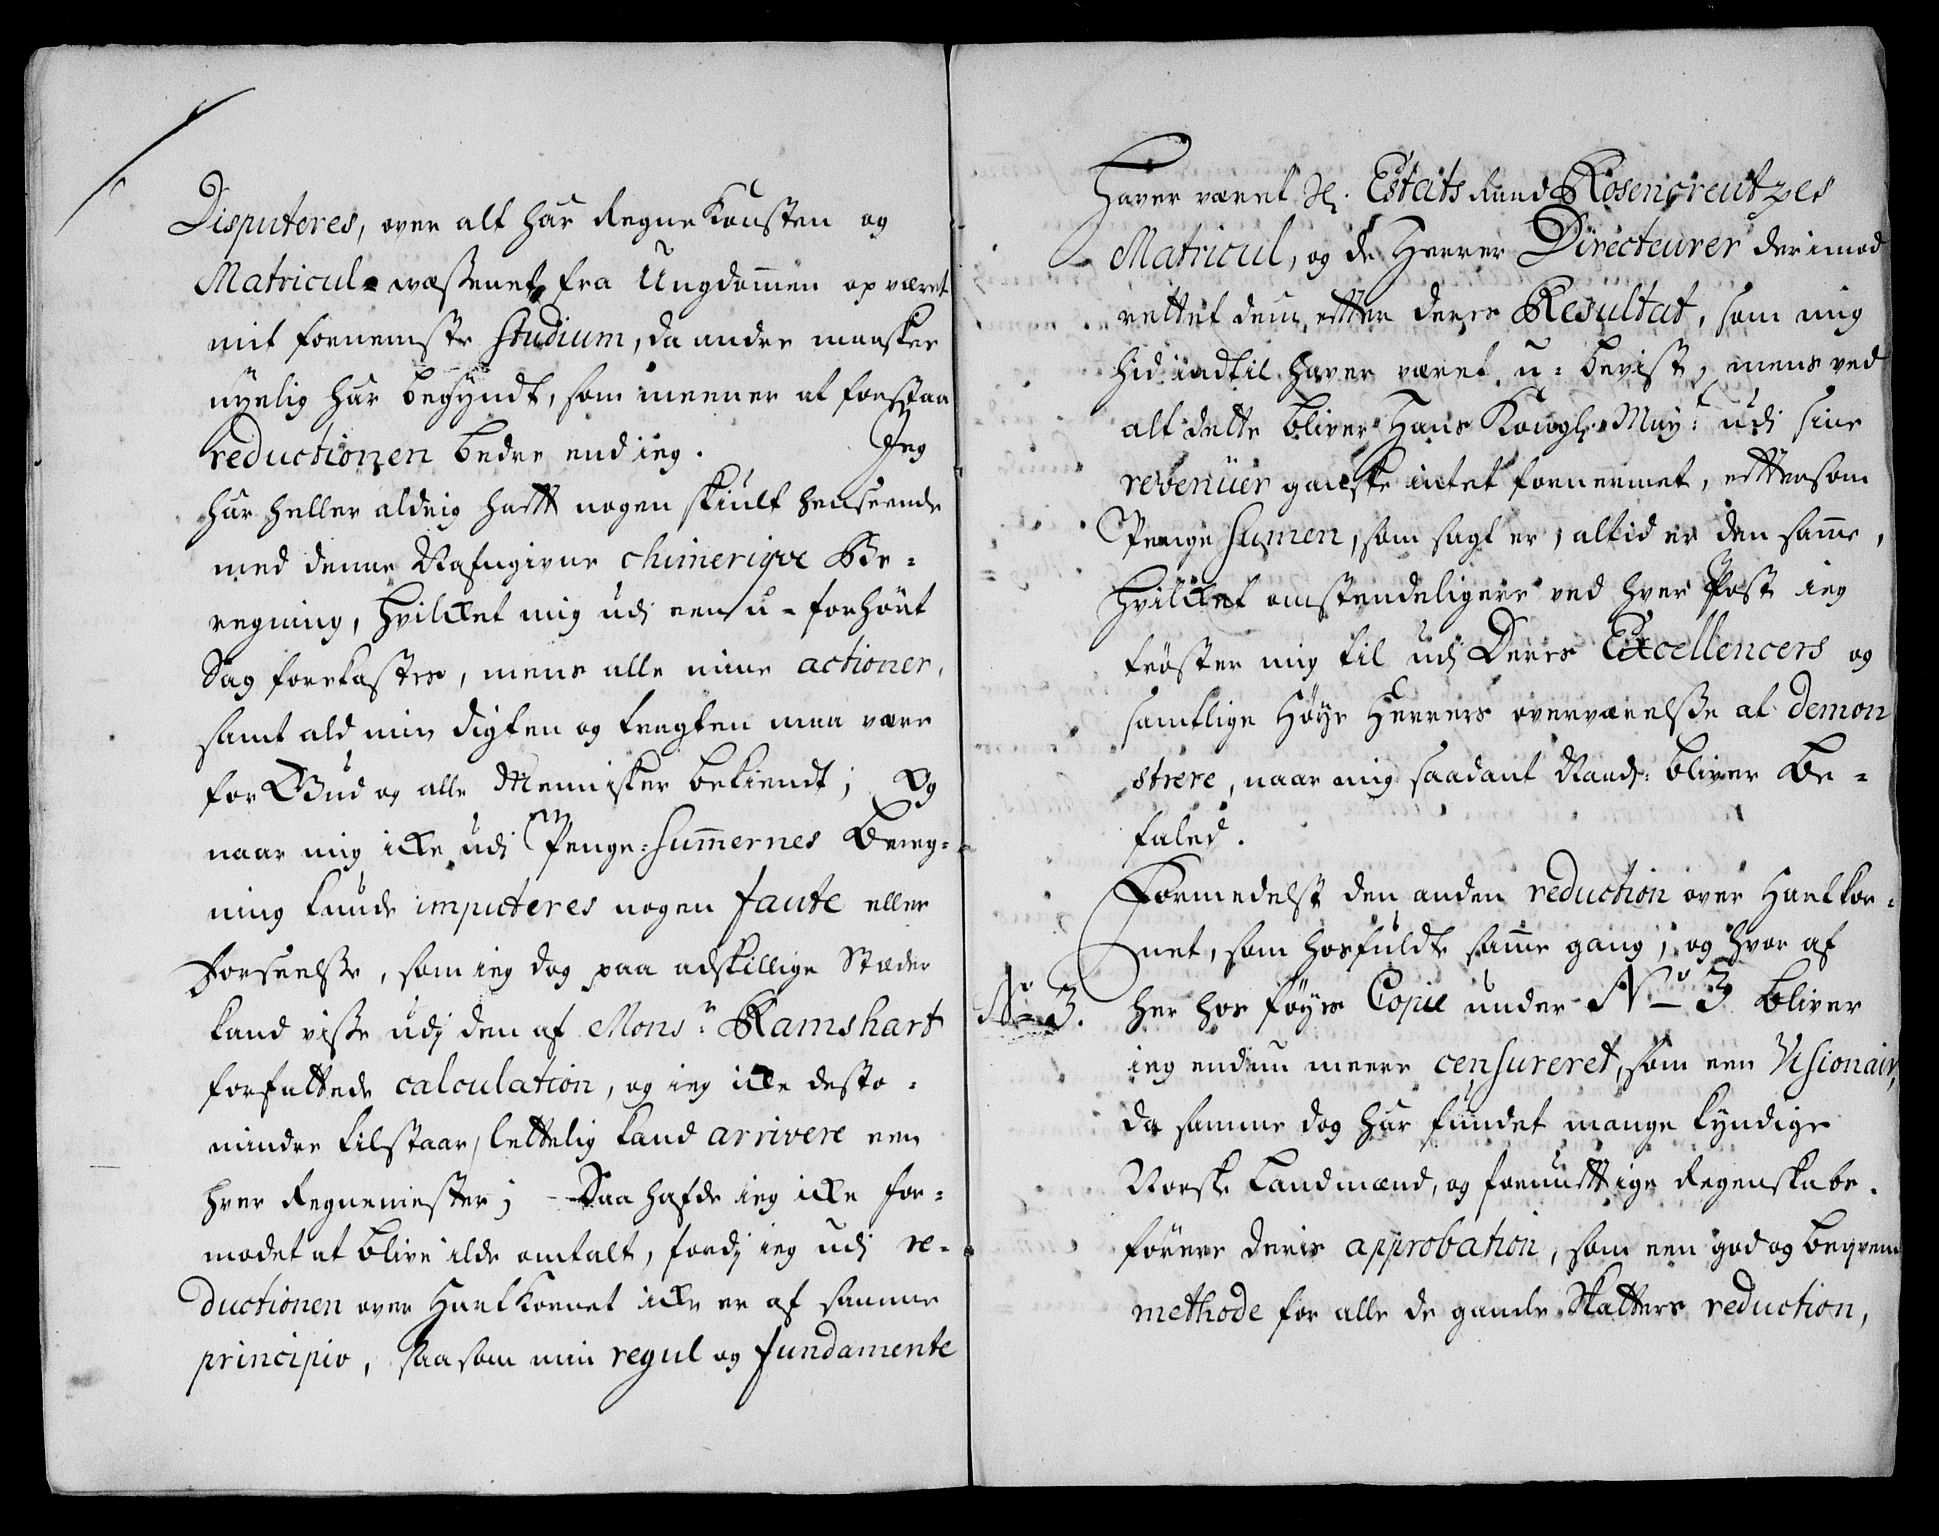 Disputeres, over alt har Regne Konsten og
Matricul-væssenet fra Ungdommen op været
mit fornemste studium, da andre maaskee
nyelig har begyndt, som meener at forstaa
reductionen bedre end ieg. Jeg
har heller aldrig hafft nogen skiult henseende
med denne Nafngivne chimeriqve Be-
regning, hvilket mig udj een u-forhört
Sag forekastes, mens alle mine actioner,
samt ald min digten og tragten maa være
for Gud og alle Mennisker bekiendt; Og
naar mig icke udj Penge-Summernes Bereg-
ning kunde imputeres nogen faute eller
Forseelsse, som ieg dog paa adskillige Stæder
kand visse udj den af Monsr: Ramshart
forfattede calculation, og ieg icke desto-
mindre tilstaar, lettelig kand arrivere een
hver Regnemester; Saa hafde ieg icke for-
modet at blive ilde omtalt, fordj ieg udj re-
ductionen over Hartkornet icke er af samme
principio, saasom min regul og fundamente
Haver været Sl. Estats Raad Rosencreutzes
Matricul, og de Herrer Directeurer derimod
rettet dem effter deres Resultat, som mig
hid indtil haver været u-bevist, mens ved
alt dette bliver Hans Kongl. May: udj sine
revenüer gandske intet fornermet, efftersom
Penge Sumen, som sagt er, altid er den samme,
Hvilket omstendeligere ved hver Post ieg
tröster mig til udj Deres Excellencers og
samtlige Höye Herrers overværelsse at demon
strere, naar mig saadant Naad: bliver Be-
faled.
Formedelst den anden reduction over Hartkor-
net, som hosfuldte samme gang, og hvor af
No 3. her hos föyes Copie under No 3 bliver
ieg endnu meere censureret, som een Visionair,
da samme dog har fundet mange kyndige
Norske Landmænd, og fornufftige Regenskabs-
förere deris approbation, som een god og beqvem
methode for alle de gamle Skatters reduction,